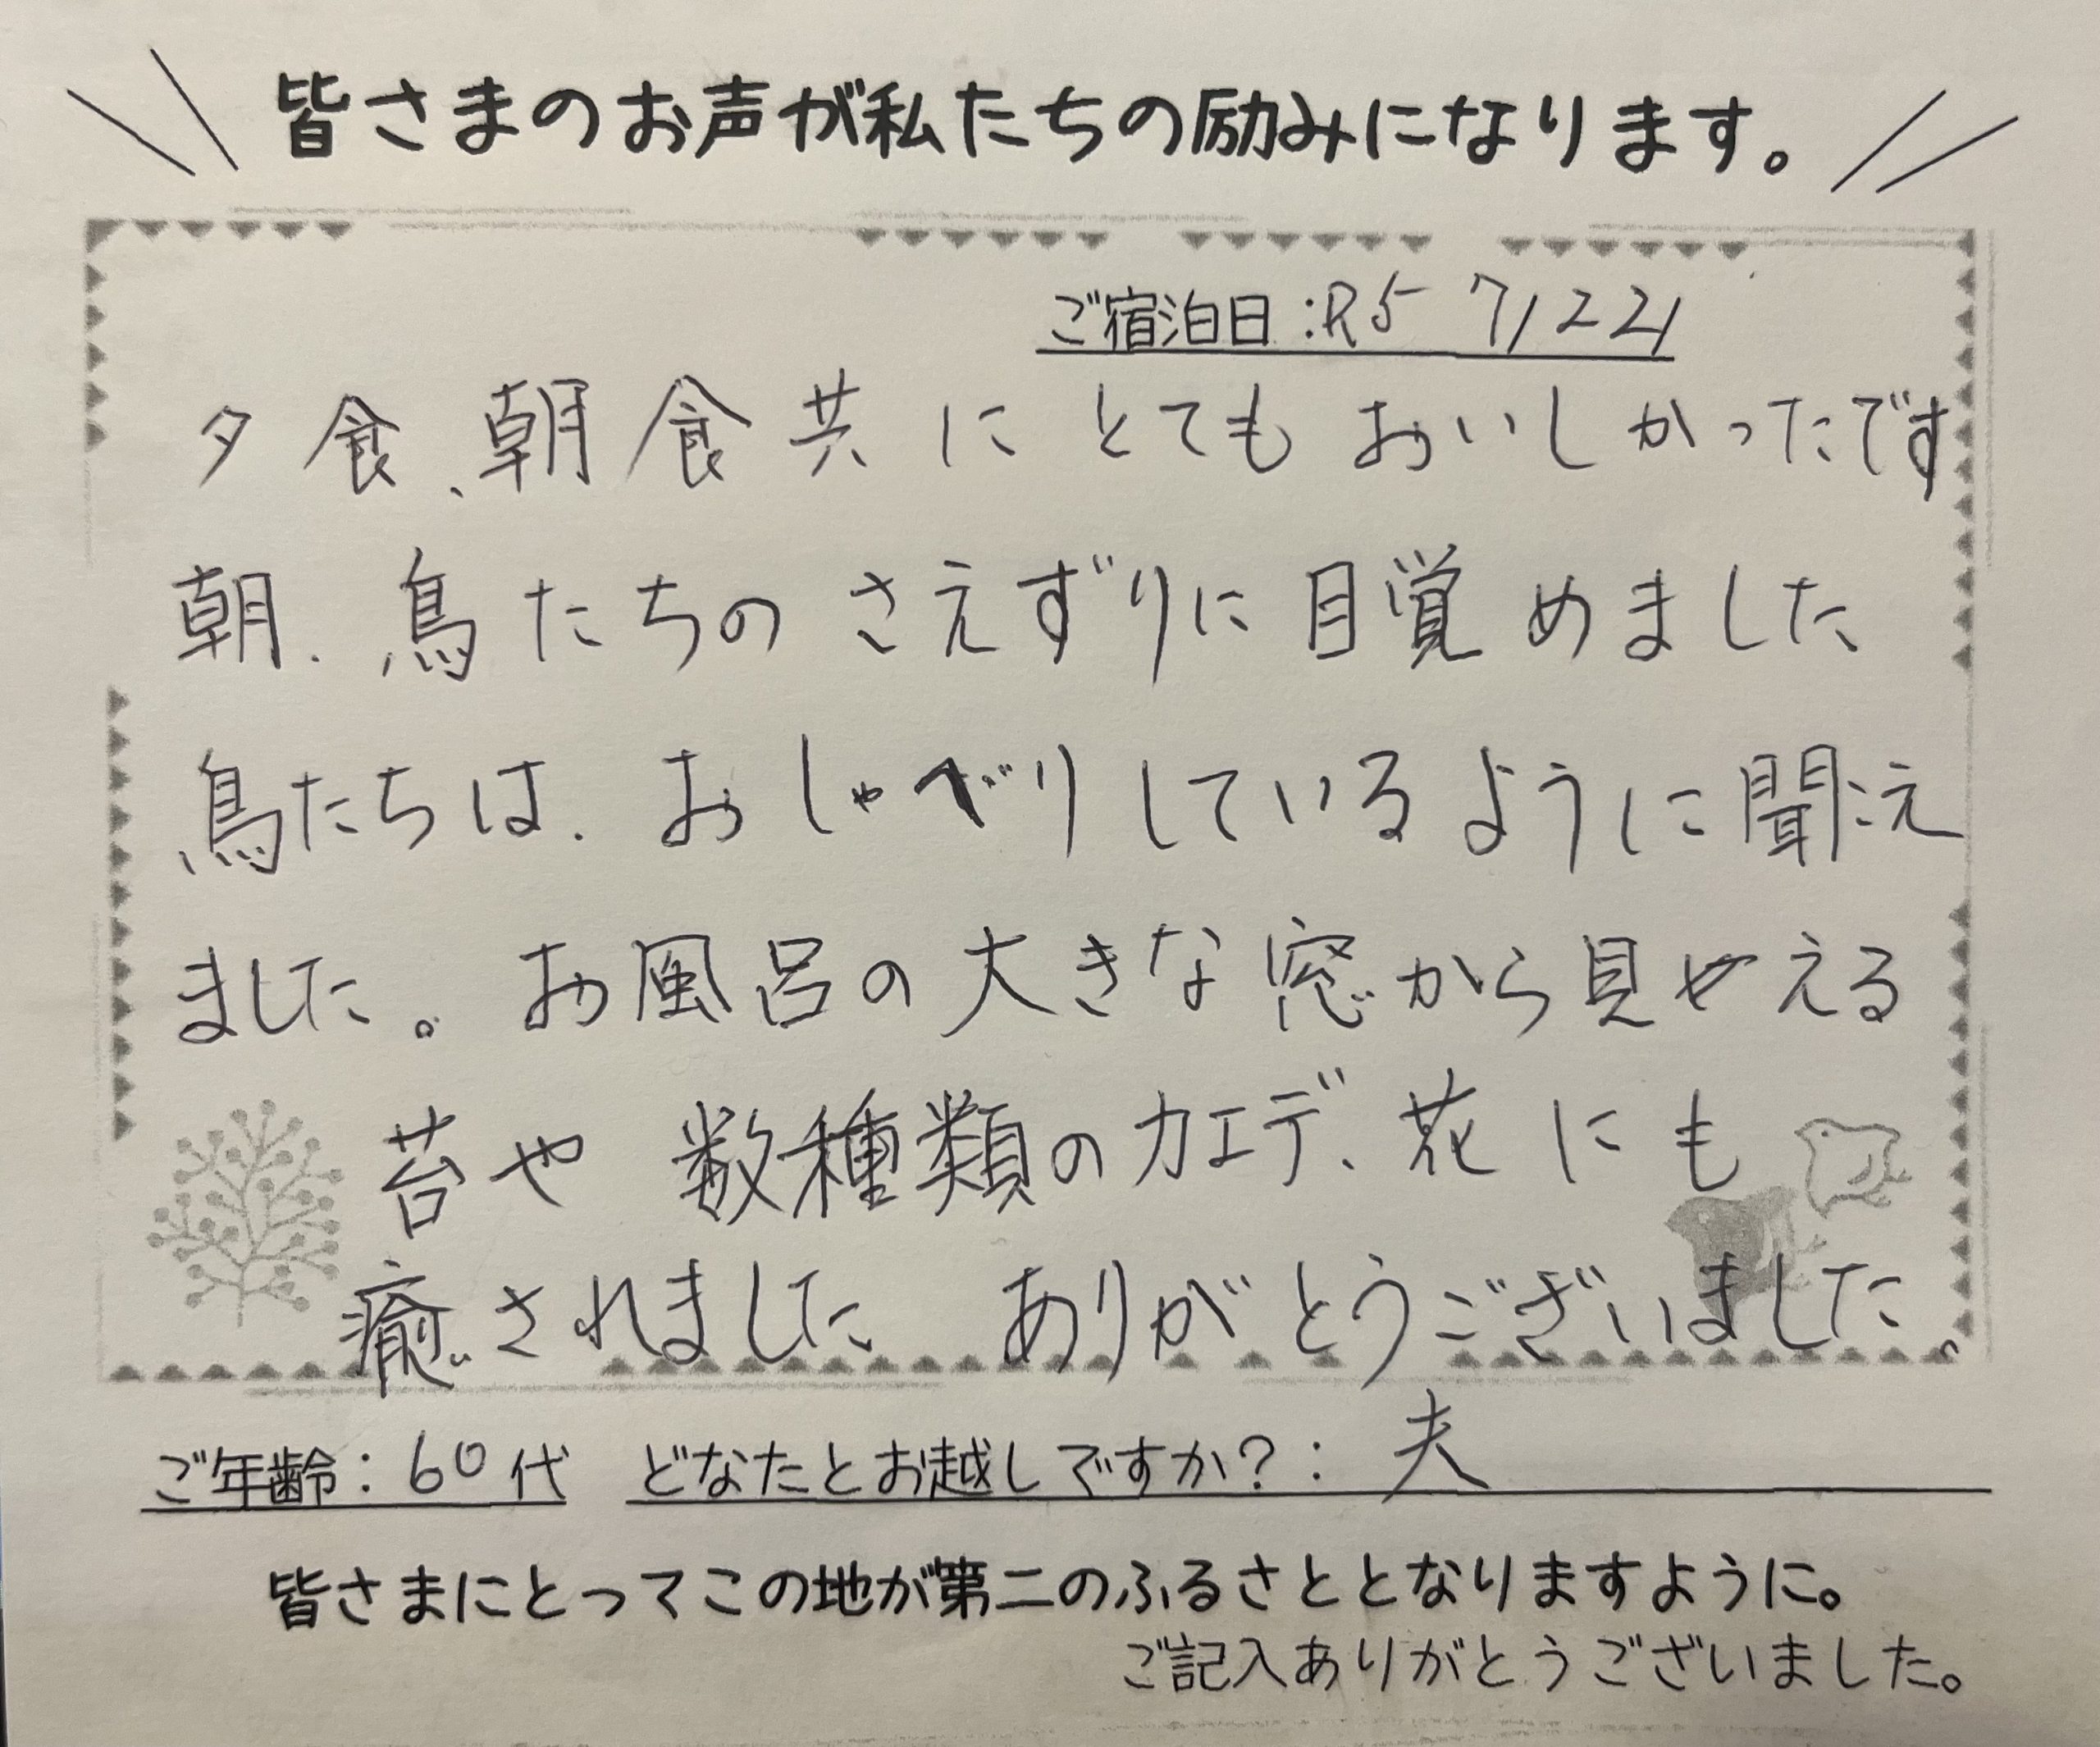 皆さまのお声が私たちの励みになります。
ご宿泊日:R5 7/22
夕食、朝食共にとてもおいしかったです
朝、鳥たちのさえずりに目覚めました
鳥たちは、おしゃべりしているように聞こえ
ました。お風呂の大きな窓から見やえる
苔や数種類のカエデ、花にも
癒されました ありがとうございました。
ご年齢:60代 どなたとお越しですか?:夫
皆さまにとってこの地が第二のふるさととなりますように。
ご記入ありがとうございました。